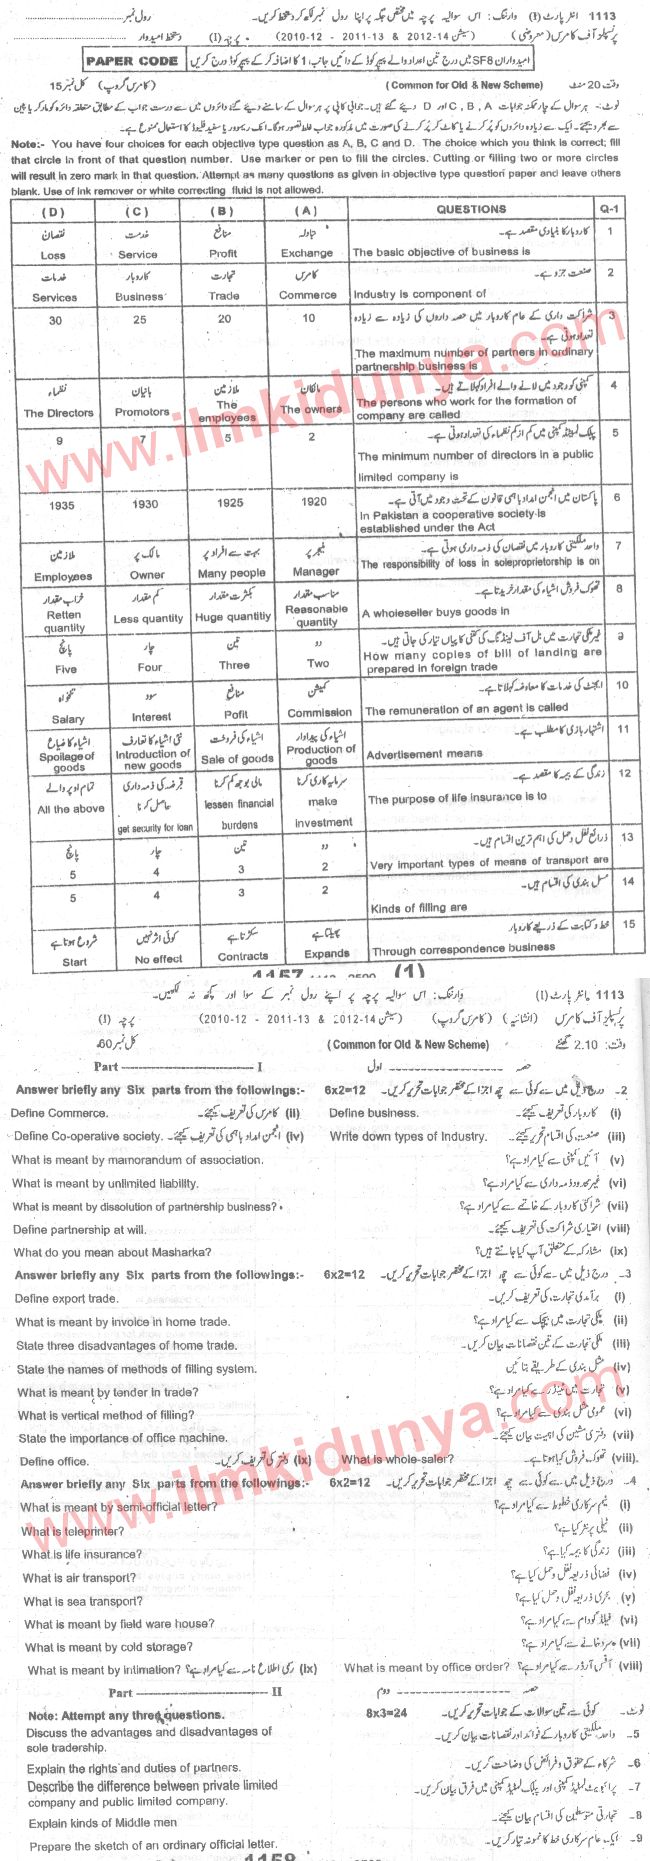 1113 انٹر پارٹ (I) وارننگ: اس سوالیہ پرچہ میں مختص جگہ پر اپنا رول نمبر لکھ کر دستخط کریں۔ رول نمبر
پرنسپلز آف کامرس (معروضی) (سیشن 2012-14 & 2011-13 - 2010-12) پرچہ (I) دستخط امیدوار
امیدواران SF8 میں درج تین اعداد والے پیپر کوڈ کے دائیں جانب 1 کا اضافہ کر کے پیپر کوڈ درج کریں PAPER CODE
وقت 20 منٹ (Common for Old & New Scheme) (کامرس گروپ) کل نمبر 15
نوٹ:- ہر سوال کے چار ممکنہ جوابات A ، B ، C اور D دیئے گئے ہیں۔ جوابی کاپی پر ہر سوال کے سامنے دیئے گئے دائروں میں سے درست جواب کے مطابق متعلقہ دائرہ کو مارکر یا پین
سے بھر دیجئے۔ ایک سے زیادہ دائروں کو پُر کرنے یا کاٹ کر پُر کرنے کی صورت میں مذکورہ جواب غلط تصور ہوگا۔ انک ریموور یا سفید فلیوڈ کا استعمال ممنوع ہے۔
Note:- You have four choices for each objective type question as A, B, C and D. The choice which you think is correct; fill
that circle in front of that question number. Use marker or pen to fill the circles. Cutting or filling two or more circles
will result in zero mark in that question. Attempt as many questions as given in objective type question paper and leave others
blank. Use of ink remover or white correcting fluid is not allowed.
(D) (C) (B) (A) QUESTIONS Q-1
نقصان خدمت منافع تبادلہ کاروبار کا بنیادی مقصد ہے۔ 1
Loss Service Profit Exchange The basic objective of business is
خدمات کاروبار تجارت کامرس صنعت جزو ہے۔ 2
Services Business Trade Commerce Industry is component of
30 25 20 10 شراکت داری کے عام کاروبار میں حصہ داروں کی زیادہ سے زیادہ 3
تعداد ہوتی ہے۔
The maximum number of partners in ordinary
partnership business is
نظماء بانیان ملازمین مالکان کمپنی کو وجود میں لانے والے افراد کہلاتے ہیں۔ 4
The Directors Promotors The employees The owners The persons who work for the formation of
company are called
9 7 5 2 پبلک لمیٹڈ کمپنی میں کم از کم نظماء کی تعداد ہوتی ہے۔ 5
The minimum number of directors in a public
limited company is
1935 1930 1925 1920 پاکستان میں انجمن امداد باہمی قانون کے تحت وجود میں آتی ہے۔ 6
In Pakistan a cooperative society is
established under the Act
ملازمین مالک پر بہت سے افراد پر منیجر پر واحد ملکیتی کاروبار میں نقصان کی ذمہ داری ہوتی ہے۔ 7
Employees Owner Many people Manager The responsibility of loss in soleproprietorship is on
خراب مقدار کم مقدار بکثرت مقدار مناسب مقدار تھوک فروش اشیاء کی مقدار خریدتا ہے۔ 8
Retten quantity Less quantity Huge quantitiy Reasonable quantity A wholeseller buys goods in
پانچ چار تین دو غیر ملکی تجارت میں بل آف لینڈنگ کی کتنی کاپیاں تیار کی جاتی ہیں۔ 9
Five Four Three Two How many copies of bill of landing are
prepared in foreign trade
تنخواہ سود منافع کمیشن ایجنٹ کی خدمات کا معاوضہ کہلاتا ہے۔ 10
Salary Interest Pofit Commission The remuneration of an agent is called
اشیاء کا ضیاع نئی اشیاء کا تعارف اشیاء کی فروخت اشیاء کی پیداوار اشتہار بازی کا مطلب ہے۔ 11
Spoilage of goods Introduction of new goods Sale of goods Production of goods Advertisement means
تمام اوپر والے قرضہ کی ذمہ داری حاصل کرنا مالی بوجھ کم کرنا سرمایہ کاری کرنا زندگی کے بیمہ کا مقصد ہے۔ 12
All the above get security for loan lessen financial burdens make investment The purpose of life insurance is to
پانچ چار تین دو ذرائع نقل و حمل کی اہم ترین اقسام ہیں۔ 13
5 4 3 2 Very important types of means of transport are
5 4 3 2 مسل بندی کی اقسام ہیں۔ 14
Kinds of filling are
شروع ہوتا ہے کوئی اثر نہیں سکڑتا ہے پھیلتا ہے خط و کتابت کے ذریعے کاروبار 15
Start No effect Contracts Expands Through correspondence business
1157 (1)
1113 انٹر پارٹ (I) وارننگ: اس سوالیہ پرچہ پر اپنے رول نمبر کے سوا اور کچھ نہ لکھیں۔
پرنسپلز آف کامرس (انشائیہ) (کامرس گروپ) (سیشن 2012-14 & 2011-13 - 2010-12) پرچہ (I)
وقت: 2.10 گھنٹے (Common for Old & New Scheme) کل نمبر 60
حصہ اول Part I
2- درج ذیل میں سے کوئی سے چھ اجزا کے مختصر جوابات تحریر کریں۔ 6x2=12 Answer briefly any Six parts from the followings:-
(i) کاروبار کی تعریف کیجئے۔ Define business. (ii) کامرس کی تعریف کیجئے۔ Define Commerce.
(iii) صنعت کی اقسام تحریر کیجئے۔ Write down types of Industry. (iv) انجمن امداد باہمی کی تعریف کیجئے۔ Define Co-operative society.
(v) آئین کمپنی سے کیا مراد ہے؟ What is meant by mamorandum of association.
(vi) غیر محدود ذمہ داری سے کیا مراد ہے؟ What is meant by unlimited liability.
(vii) شراکتی کاروبار کے خاتمے سے کیا مراد ہے؟ What is meant by dissolution of partnership business?
(viii) اختیاری شراکت کی تعریف کیجئے۔ Define partnership at will.
(ix) مشارکہ کے متعلق آپ کیا جانتے ہیں؟ What do you mean about Masharka?
3- درج ذیل میں سے کوئی سے چھ اجزا کے مختصر جوابات تحریر کریں۔ 6x2=12 Answer briefly any Six parts from the followings:-
(i) برآمدی تجارت کی تعریف کریں۔ Define export trade.
(ii) ملکی تجارت میں بیچک سے کیا مراد ہے؟ What is meant by invoice in home trade.
(iii) ملکی تجارت کے تین نقصانات بیان کریں۔ State three disadvantages of home trade.
(iv) مثل بندی کے طریقے بتائیں State the names of methods of filling system.
(v) تجارت میں ٹینڈر سے کیا مراد ہے؟ What is meant by tender in trade?
(vi) عمودی مثل بندی سے کیا مراد ہے؟ What is vertical method of filling?
(vii) دفتری مشین کی اہمیت بیان کیجئے۔ State the importance of office machine.
(viii) تھوک فروش کیا ہوتا ہے۔ What is whole-saler? (ix) دفتر کی تعریف کریں۔ Define office.
4- درج ذیل میں سے کوئی سے چھ اجزا کے مختصر جوابات تحریر کریں۔ 6x2=12 Answer briefly any Six parts from the followings:-
(i) نیم سرکاری خطوط سے کیا مراد ہے؟ What is meant by semi-official letter?
(ii) ٹیلی پرنٹر کیا ہے؟ What is teleprinter?
(iii) زندگی کا بیمہ کیا ہے؟ What is life insurance?
(iv) فضائی ذریعہ نقل و حمل کیا ہے؟ What is air transport?
(v) بحری ذریعہ نقل و حمل کیا ہے؟ What is sea transport?
(vi) فیلڈ گودام سے کیا مراد ہے؟ What is meant by field ware house?
(vii) سرد خانے سے کیا مراد ہے؟ What is meant by cold storage?
(viii) آفس آرڈر سے کیا مراد ہے؟ What is meant by office order? (ix) رسمی اطلاع نامہ سے کیا مراد ہے؟ What is meant by intimation?
حصہ دوم Part II
نوٹ۔ کوئی سے تین سوالات کے جوابات تحریر کریں۔ 8x3=24 Note: Attempt any three questions.
5- واحد ملکیتی کاروبار کے فوائد اور نقصانات بیان کریں۔ Discuss the advantages and disadvantages of
sole tradership.
6- شرکاء کے حقوق و فرائض کی وضاحت کریں۔ Explain the rights and duties of partners.
7- پرائیویٹ لمیٹڈ کمپنی اور پبلک لمیٹڈ کمپنی میں فرق بیان کریں۔ Describe the difference between private limited
company and public limited company.
8- تجارتی متوسطین کی اقسام بیان کیجئے۔ Explain kinds of Middle men
9- ایک عام سرکاری خط کا نمونہ تیار کریں۔ Prepare the sketch of an ordinary official letter.
1158
www.ilmkidunya.com
www.ilmkidunya.com